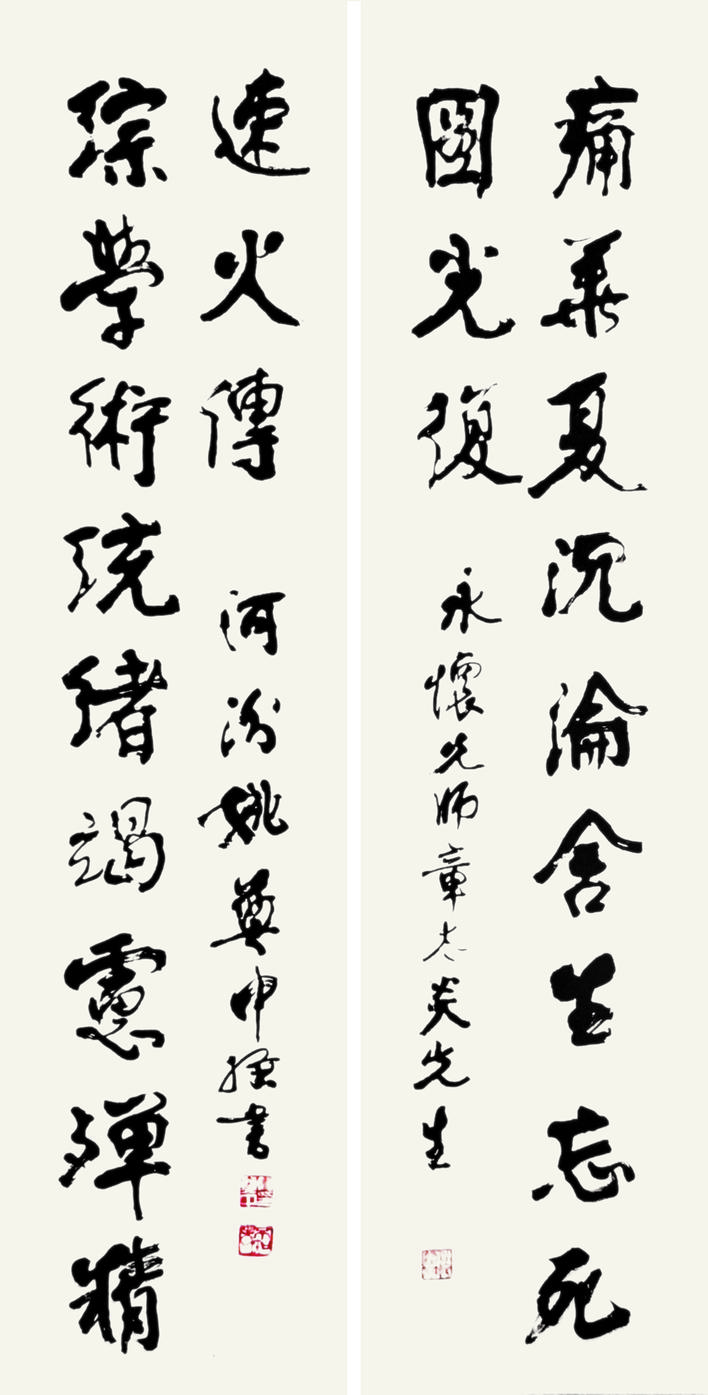 痛華夏沉淪舍生忘死
圖光復
永懷先師章太炎先生
綜學術統緒竭慮殫精
速火傳
河汾姚奠中撰書